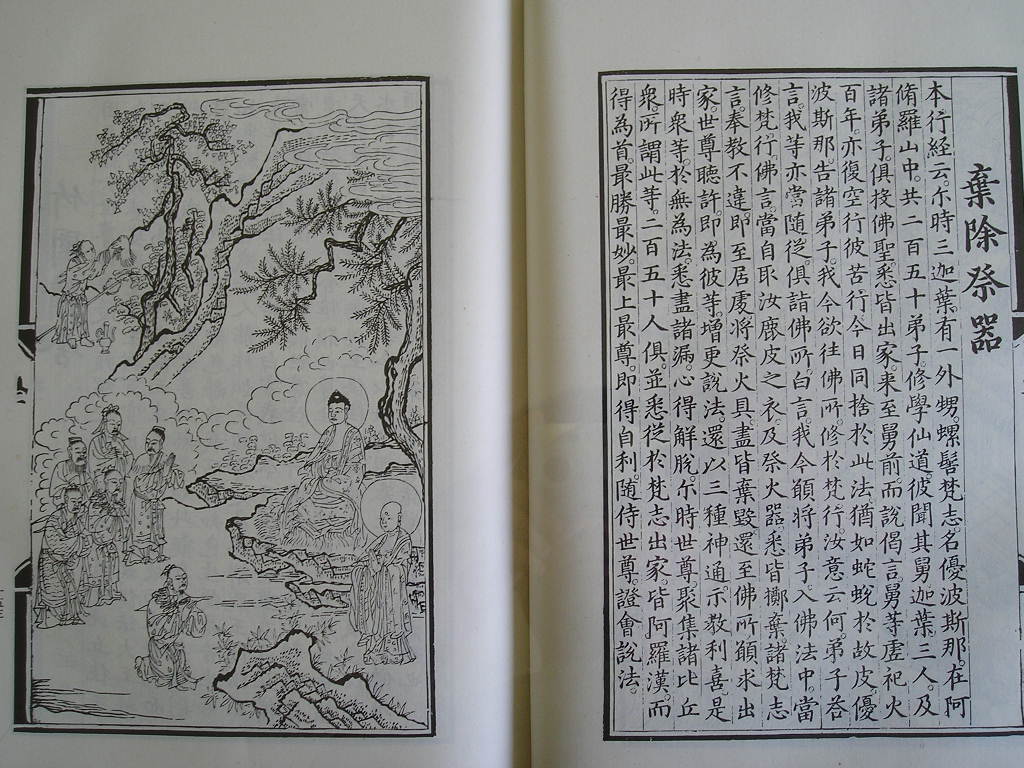 棄除祭器
本行經云。尒時三迦葉。有一外甥。螺髻梵志。名優波斯那。在阿
脩羅山中。共二百五十弟子。修學仙道。彼聞其舅迦葉。三人。及
諸弟子。俱投佛聖。悉皆出家。来至舅前。而說偈言。舅等虛祀火
百年。亦復空行彼苦行。今日同捨於此法。猶如蛇蛻於故皮。優
波斯那。告諸弟子。我今欲往佛所。修於梵行。汝意云何。弟子荅
言。我等亦當随從。俱詣佛所。白言。我今願將弟子入佛法中。當
修梵行。佛言。當自取汝鹿皮之衣。及祭火器。悉皆擲棄。諸梵志
言。奉教不違。即至居處。將祭火具。盡皆棄毀。還至佛所。願求出
家。世尊聽許。即為彼等。增更說法。還以三種神通。示教利喜。是
時衆等。於無為法。悉盡諸漏。心得解脫。尒時世尊。聚集諸比丘
衆。所謂此等。二百五十人俱。並悉從於梵志出家。皆阿羅漢。而
得為首。最勝最妙。最上最尊。即得自利。随侍世尊。證會說法。